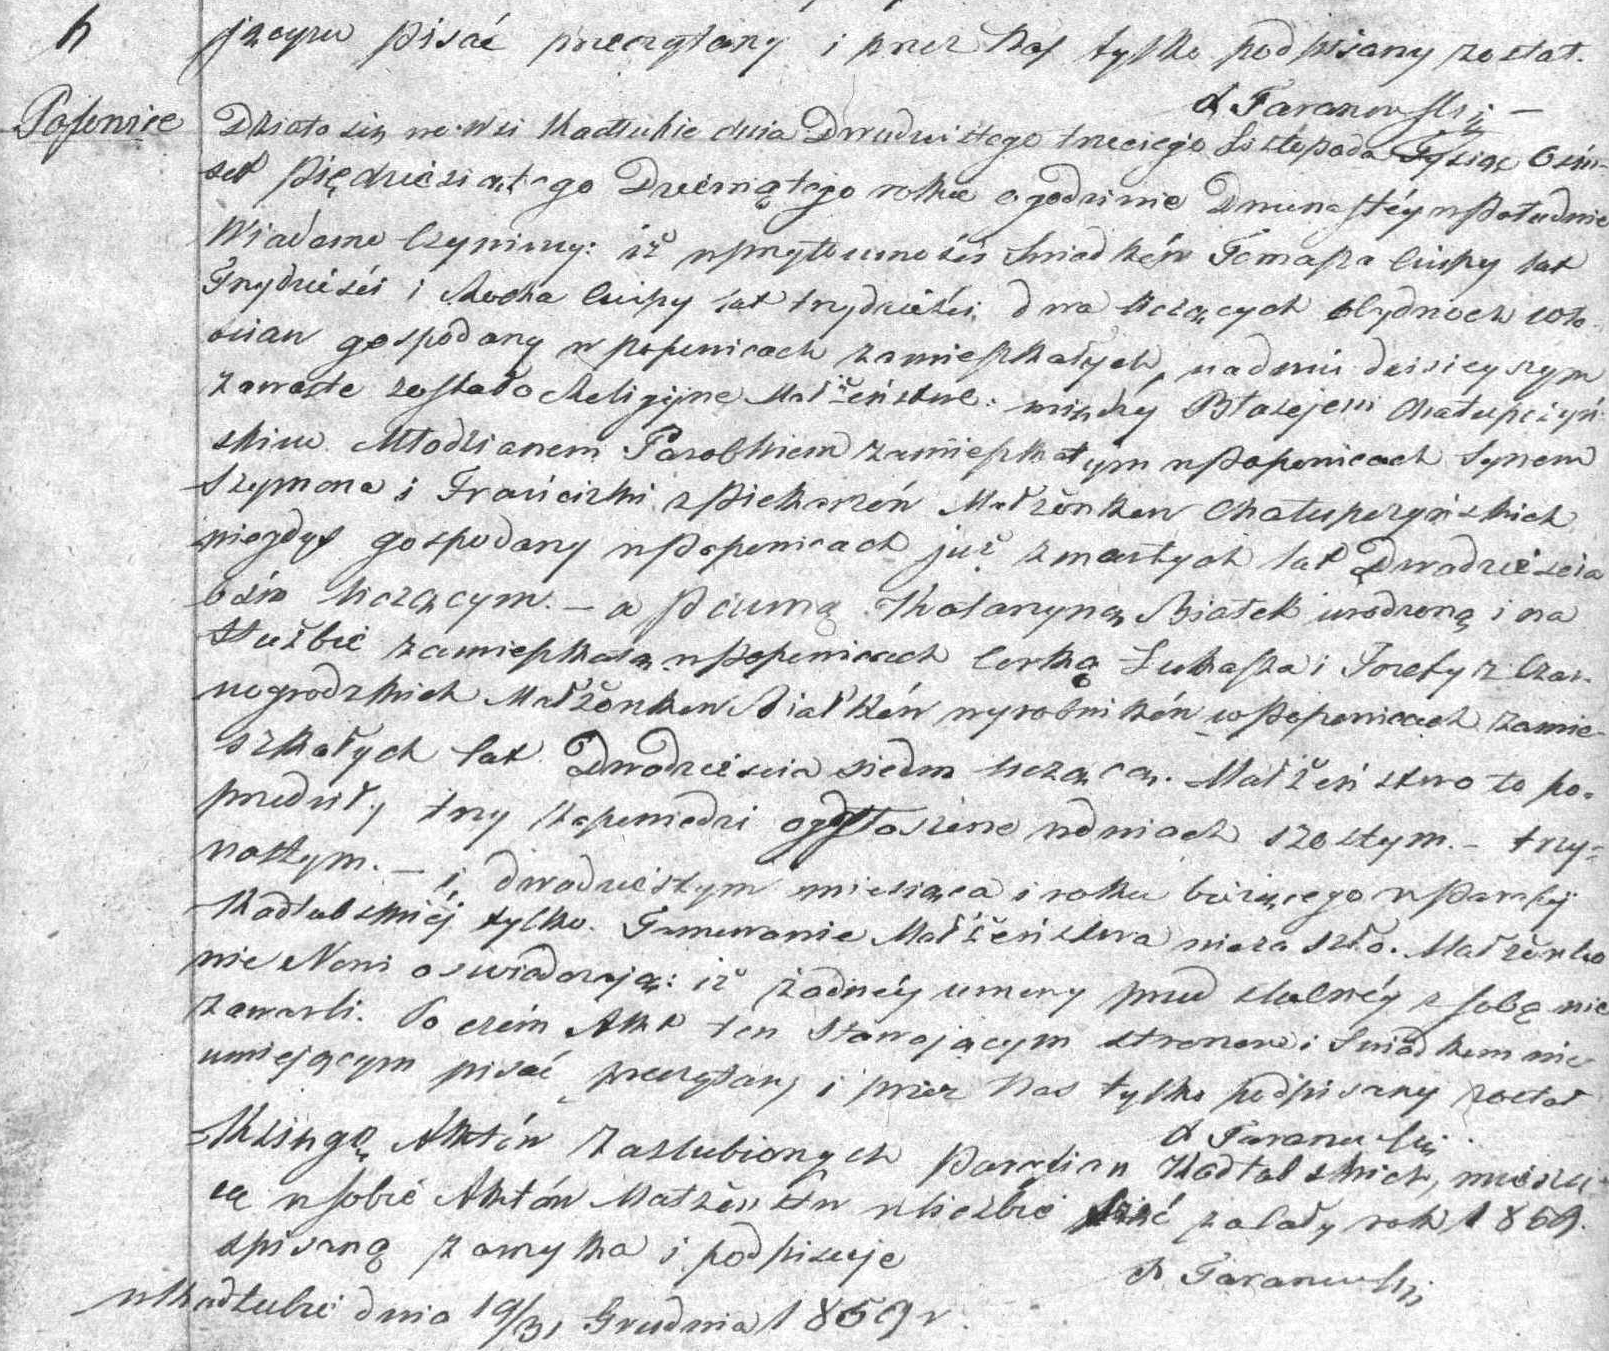 6
jącym pisać przeczytany i przez Nas tylko podpisany został.
X Taranowski
Posenice
Działo się we Wsi Kadłubie dnia Dwudziestego trzeciego Listopada Tysiąc Ośm-
set Pięćdziesiątego Dziewiątego roku o godzinie Dwunastéy w Południe
Wiadomo Czynimy: iż w przytomności Świadków Tomasza Ciupy lat
Trzydzieści i Rocha Ciupy lat trzydzieści dwa liczących obydwoch wło-
ścian gospodarzy w Popenicach zamieszkałych, na dniu dzisieyszym
zawarte zostało Religijne Małżeństwo: między Błażejem Chałupczyń-
skim Młodzianem Parobkiem zamieszkałym w Popenicach Synem
Szymona i Franciszki z Piekarzów Małżonków Chałupczyńskich
niegdyś gospodarzy w Popenicach już zmarłych lat Dwadzieścia
ośm liczącym. – a Panną Katarzyną Białek urodzoną i na
Służbie zamieszkałą w Popenicach Corką Łukasza i Jozefy z Czar-
nogrodzkich Małżonków Białków wyrobników w Popenicach zamie-
szkałych lat Dwadzieścia siedm liczącą. Małżeństwo to po-
przedziły trzy zapowiedzi ogłoszone w dniach szostym. – trzy-
nastym. – i dwudziestym miesiąca i roku bieżącego w Parafij
Kadłubskiéj tylko. Tamowanie Małżeństwa nie zaszło. Małżonko
nie Nowi oswiadczają: iż żadnéy umowy przed slubnéy z sobą nie
zawarli. Po czém Akt ten Stawającym stronom i Swiadkom nie
umiejącym pisać przeczytany i przez Nas tylko podpisany został
X Taranowski.
Księgę Aktów Zaslubionych Parafian Kadłubskich, mieszczą-
cą w sobie Aktów Małżeństw w liczbie sześć za cały rok 1859.
spisaną zamyka i podpisuje
X Taranowski
w Kadłubie dnia 19/31 Grudnia 1859 r.